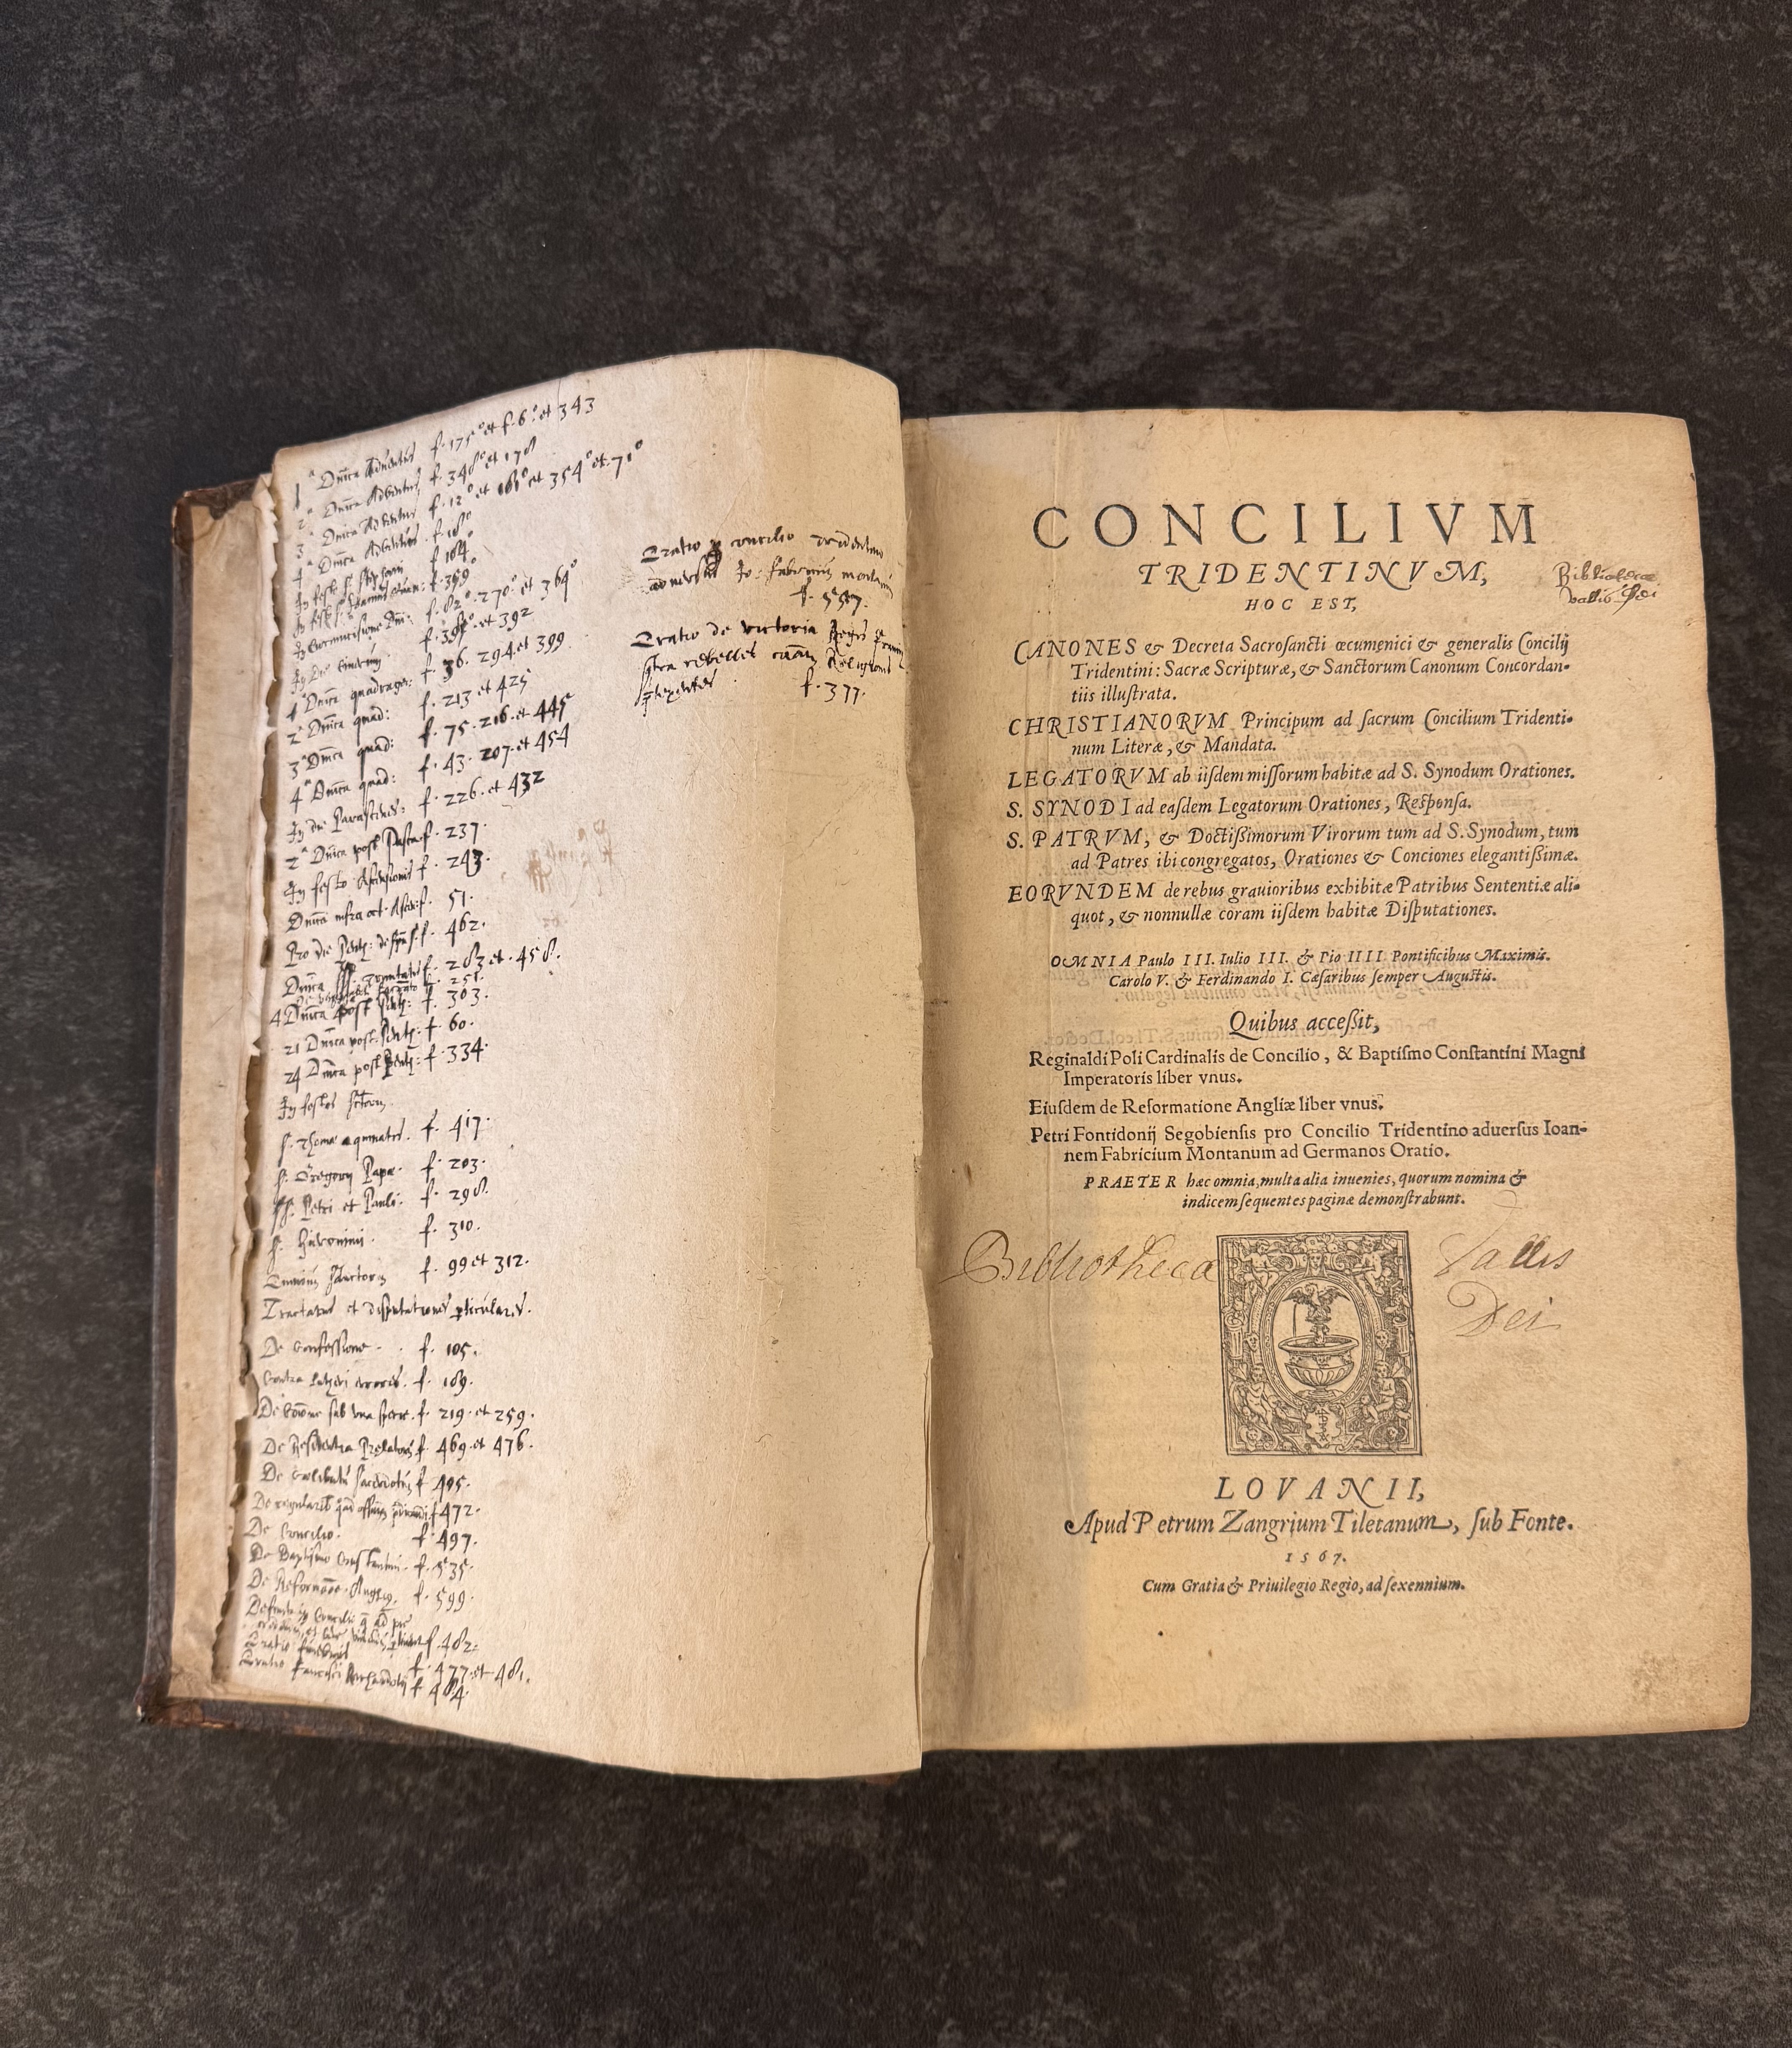 1ᵃ Dnica Adventus f. 175° et f. 6° et 343
2ᵃ Dnica Adventus f. 348° et 178
3ᵃ Dnica Adventus f. 12° et 161° et 354° et 71°
4ᵃ Dnica Adventus f. 18°
In festo S. Stephani f. 164°
In festo S. Joannis f. 359°
In Circumcisione Dni: f. 82° 270° et 364°
In die Cinerum f. et 392
1ᵃ Dnica quadrage: f. 36. 294 et 399
2ᵃ Dnica quad: f. 213 et 425
3ᵃ Dnica quad: f. 75. 216. et 445
4ᵃ Dnica quad: f. 43. 207. et 454
In die Parasceves: f. 226. et 432
2ᵃ Dnica post Pasca f. 237.
In festo Ascensionis f. 243.
Dnica infra oct. Ascen: f. 51.
Pro die Pent: f. 462.
Dnica f. 283 et. 458.
f. 251.
4 Dnica post Pent: f. 303.
21 Dnica post. Pent: f. 60.
24 Dnica post Pent: f. 334.
In festis Sctorum.
S. Thomæ aquinatis. f. 417.
S. Gregorij Papæ. f. 203.
SS. Petri et Pauli. f. 298.
S. Hieronimi. f. 310.
Omnium Sanctorum f. 99 et 312.
Tractatus et disputationes pticulares.
De Confessione. f. 105.
Contra Lutheri errores. f. 189.
De coione sub una specie. f. 219. et 259.
De Residentia Prelatorum f. 469. et 476.
De Coelibatu sacerdotum f. 495.
De regularib f. 472.
De Concilio. f. 497.
De Baptismo Constantini. f. 535.
De Reformaoe. Angliæ. f. 599.
Defensio Concilii
f. 482.
Oratio funebris f. 477 et 481.
Oratio Francisci f. 484.
Oratio p concilio Tridentino
adversus Jo: Fabricium montanum
f. 557.
Oratio de victoria Regis
stra rebelles Religionis
ptexentes f. 377.
CONCILIVM
TRIDENTINVM,
HOC EST,
Bibliothecæ
Vallis Dei
CANONES & Decreta Sacrosancti œcumenici & generalis Concilij
Tridentini: Sacræ Scripturæ, & Sanctorum Canonum Concordan-
tiis illustrata.
CHRISTIANORVM Principum ad sacrum Concilium Tridenti-
num Literæ, & Mandata.
LEGATORVM ab iisdem missorum habitæ ad S. Synodum Orationes.
S. SYNODI ad easdem Legatorum Orationes, Responsa.
S. PATRVM, & Doctißimorum Virorum tum ad S. Synodum, tum
ad Patres ibi congregatos, Orationes & Conciones elegantißimæ.
EORVNDEM de rebus grauioribus exhibitæ Patribus Sententiæ ali-
quot, & nonnullæ coram iisdem habitæ Disputationes.
OMNIA Paulo III. Iulio III. & Pio IIII Pontificibus Maximis.
Carolo V. & Ferdinando I. Cæsaribus semper Augustis.
Quibus acceßit,
Reginaldi Poli Cardinalis de Concilio, & Baptismo Constantini Magni
Imperatoris liber vnus.
Eiusdem de Reformatione Angliæ liber vnus.
Petri Fontidonij Segobiensis pro Concilio Tridentino aduersus Ioan-
nem Fabricium Montanum ad Germanos Oratio.
PRAETER hæc omnia, multa alia inuenies, quorum nomina &
indicem sequentes paginæ demonstrabunt.
Bibliotheca Vallis
Dei
LOVANII,
Apud Petrum Zangrium Tiletanum, sub Fonte.
1567.
Cum Gratia & Priuilegio Regio, ad sexennium.